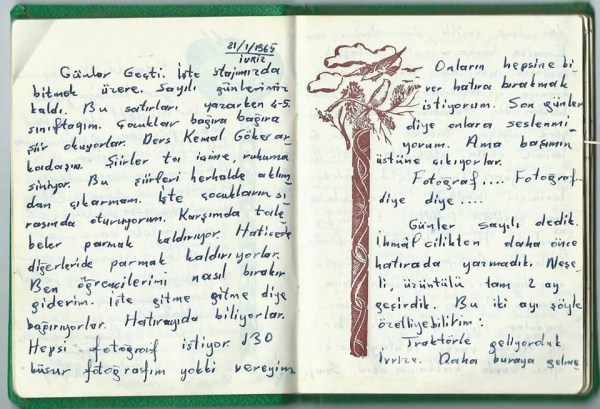 21/1/1965
İVRİZ
Günler Geçti. İşte stajımızda
bitmek üzere. Sayılı günlerimiz
kaldı. Bu satırları yazarken 4-5.
sınıftayım. Çocuklar bağıra bağıra
şiir okuyorlar. Ders Kemal Göker ar_
kadaşın. Şiirler ta içime, ruhuma
siniyor. Bu şiirleri herhalde aklım_
dan çıkarmam. İşte çocukların sı_
rasında oturuyorum. Karşımda tale_
beler parmak kaldırıyor. Haticede
diğerleride parmak kaldırıyorlar.
Ben öğrencilerimi nasıl bırakır
giderim. İşte gitme gitme diye
bağırıyorlar. Hatırayıda biliyorlar.
Hepsi fotoğraf istiyor. 130
küsur fotoğrafım yokki vereyim.
Onların hepsine bi_
rer hatıra bırakmak
istiyorum. Son günler
diye onlara seslenmi_
yorum. Ama başımın
üstüne çıkıyorlar.
Fotoğraf.... Fotoğraf
diye diye....
Günler sayılı dedik.
İhmalcilikten daha önce
hatırada yazmadık. Neşe_
li, üzüntülü tam 2 ay
geçirdik. Bu iki ayı şöyle
özetliyebilirim:
Traktörle geliyorduk
İvrize. Daha buraya gelme